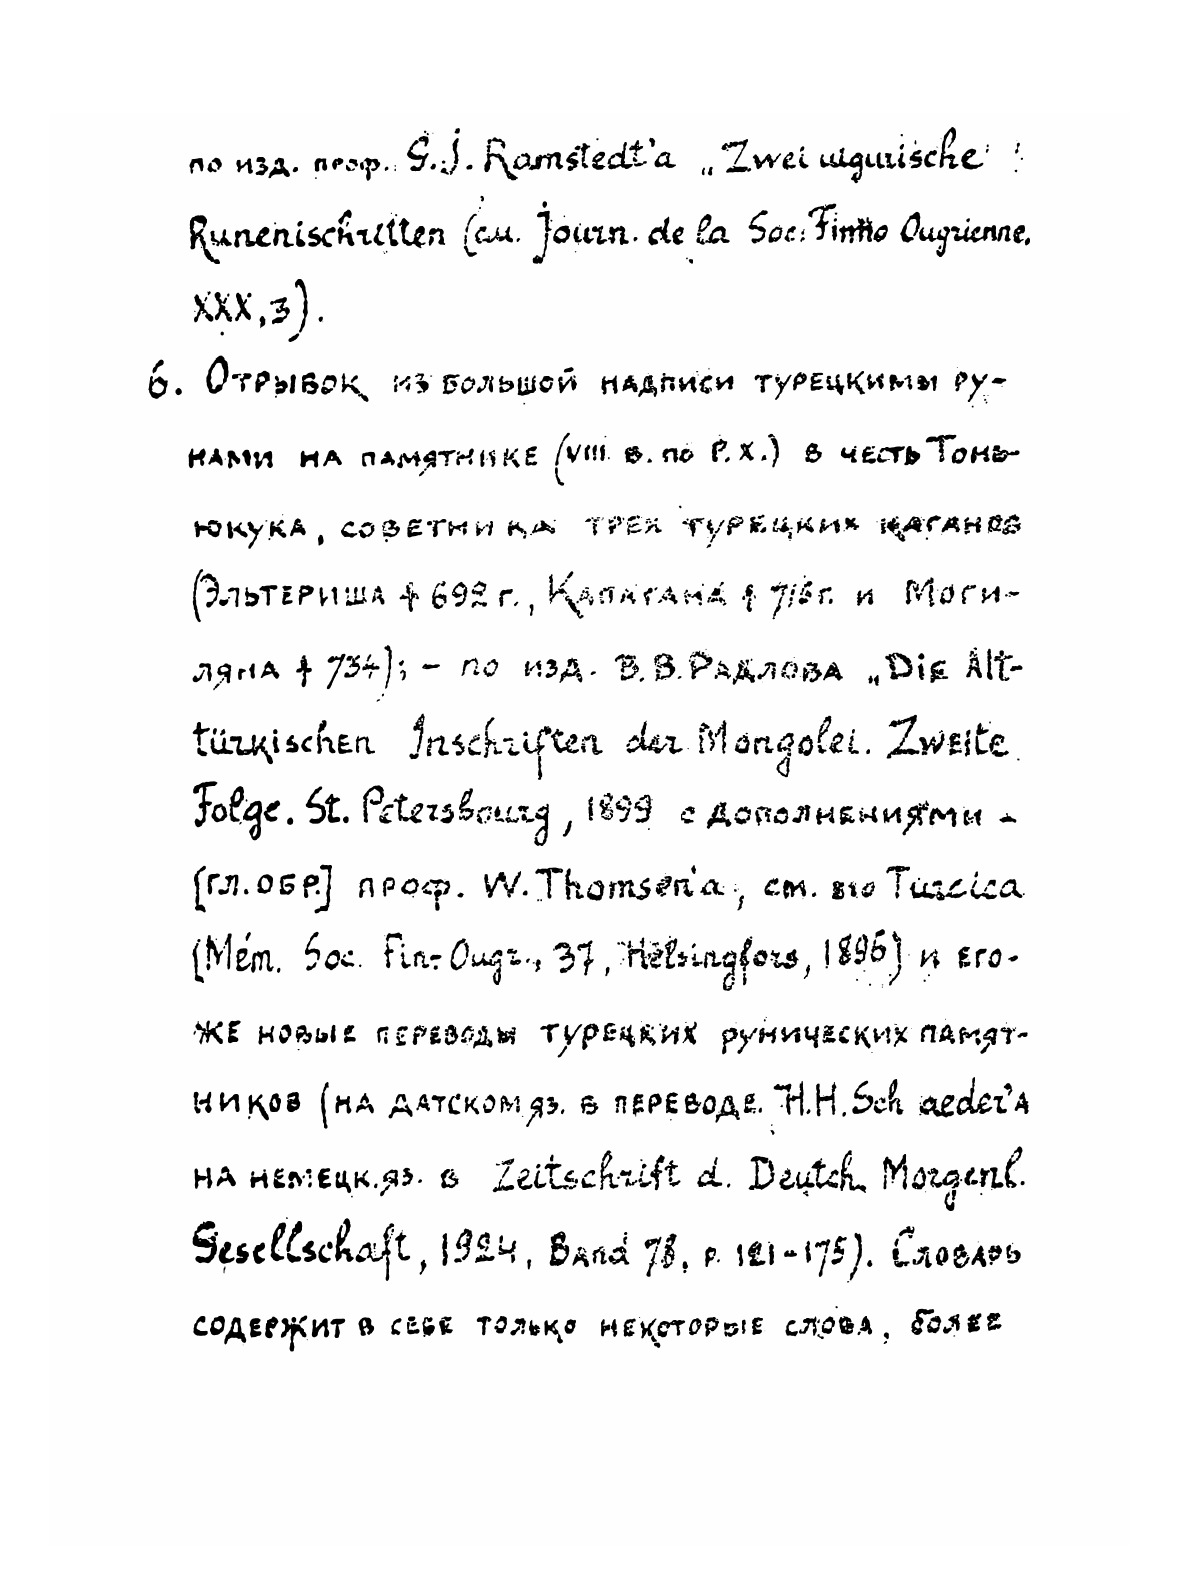 по изд. проф. G.J. Ramstedt'a „Zwei uigurische
Runenischriften (см. Journ. de la Soc. Finno Ougrienne,
XXX,3).
6. Отрывок из большой надписи турецкимы ру-
нами на памятнике (VIII в. по Р.Х.) в честь Тонь-
юкука, советника трех турецких каганов
(Эльтериша † 692 г., Капагана † 716 г. и Моги-
ляна † 734); – по изд. В.В.Радлова „Die Alt-
türkischen Inschriften der Mongolei. Zweite
Folge. St. Petersbourg, 1899 с дополнениями –
[гл.обр.] проф. W.Thomsen'a, см. его Turcica
(Mém. Soc. Fin-Ougr., 37, Helsingfors, 1896) и его-
же новые переводы турецких рунических памят-
ников (на датском яз. в переводе H.H.Schaeder'а
на немецк.яз. в Zeitschrift d. Deutch. Morgenl.
Gesellschaft, 1924, Band 78, p. 121-175). Словарь
содержит в себе только некоторые слова, более